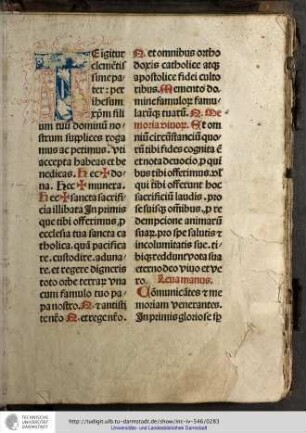 TE igitur
clemētis
sime pa-
ter: per
ihesum
xp̄m fili
um tuū dominū no-
strum supplices roga
mus ac petimus. Vti
accepta habeas et be
nedicas. Hec ✠ do-
na. Hec ✠ munera.
Hec ✠ sancta sacrifi-
cia illibata In primis
que tibi offerimus. p̱
ecclesia tua sancta ca
tholica. quā pacifica
re. custodire. aduna-
re. et regere digneris
toto orbe terraꝝ vna
cum famulo tuo pa-
pa nostro. N. et antisti
te nr̄o N. et rege nr̄o.
N. et omnibus ortho
doxis catholice atqꝫ
apostolice fidei culto
ribus. Memento do
mine famuloꝝ famu-
larūqꝫ tuarū. N. Me
moria viuoꝝ. Et om
niū circūstanciū quo-
rū tibi fides cognita ē
et nota deuocio, p̱ qui
bus tibi offerimus. vl̓
qui tibi offerunt hoc
sacrificiū laudis. pro
se suisqꝫ om̄ibus, p̱ re
dempcione animarū
suaꝝ. pro spe salutis et
incolumitatis sue. ti-
biqꝫ reddunt vota sua
eterno deo viuo et ve
ro. Leua manus.
Cōmunicātes et me
moriam venerantes.
In primis gloriose sp̱
TECHNISCHE
UNIVERSITÄT
DARMSTADT
http://tudigit.ulb.tu-darmstadt.de/show/inc-iv-546/0283
Universitäts- und Landesbibliothek Darmstadt